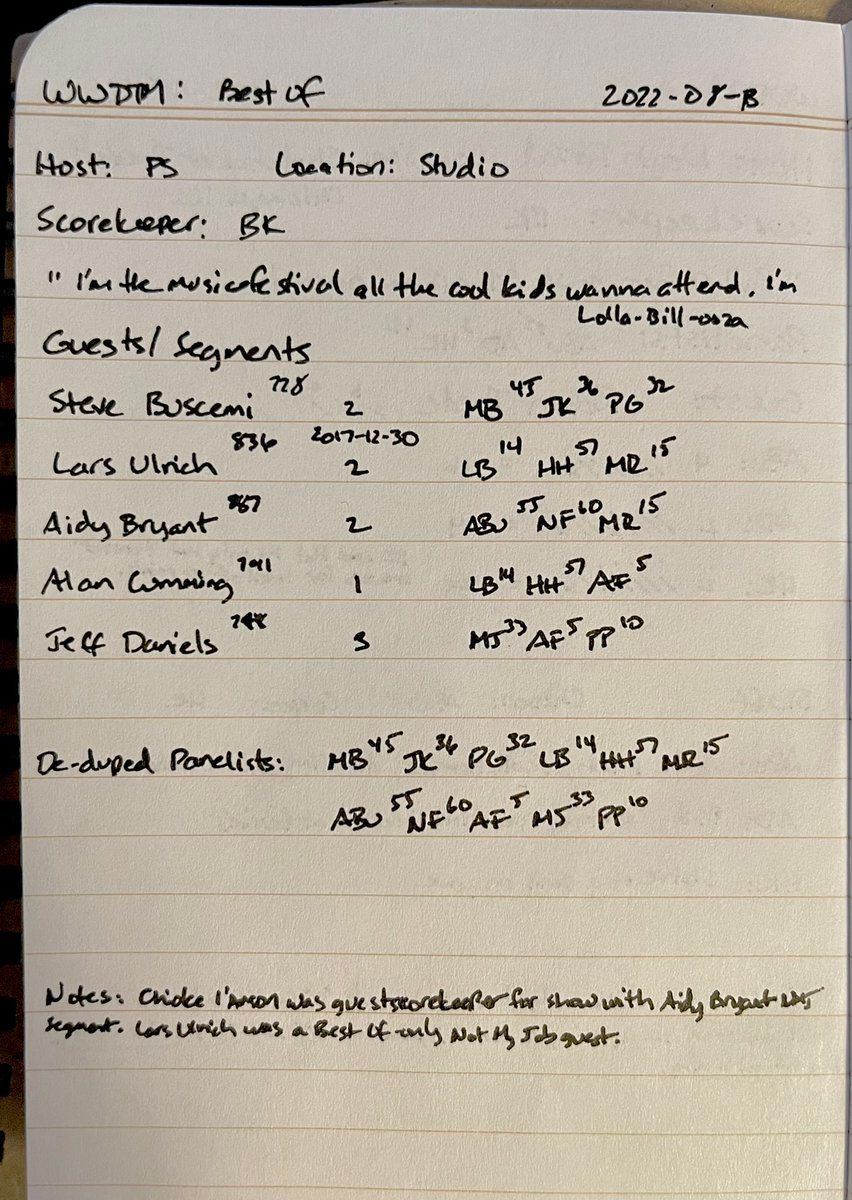 WWDTM: Best Of 2022-08-13
Host: PS Location: Studio
Scorekeeper: BK
"I'm the music festival all the cool kids wanna attend. I'm
Lolla-Bill-ooza
Guests/Segments
Steve Buscemi 728 2 MB 45 JK 36 PG 32
2017-12-30
Lars Ulrich 836 2 LB 14 HH 57 MR 15
Aidy Bryant 867 2 ABU 55 NF 60 MR 15
Alan Cumming 791 1 LB 14 HH 57 AF 5
Jeff Daniels 748 3 MJ 33 AF 5 PP 10
De-duped Panelists: MB 45 JK 36 PG 32 LB 14 HH 57 MR 15
ABU 55 NF 60 AF 5 MJ 33 PP 10
Notes: Chioke I'Anson was guest scorekeeper for show with Aidy Bryant NMJ
segment. Lars Ulrich was a Best Of only Not My Job guest.